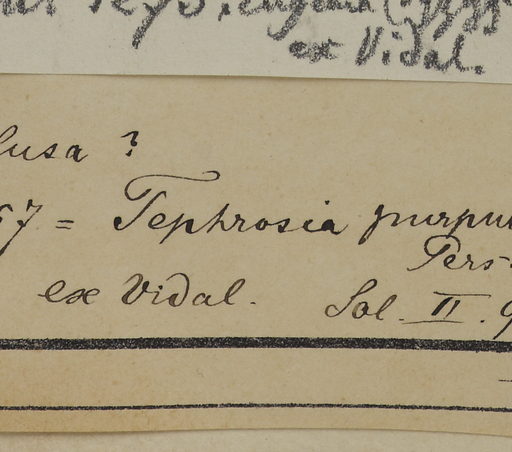 ex Vidal.
lusa ?
57 = Tephrosia purpu
Pers.
ex Vidal. Sol. II. 9